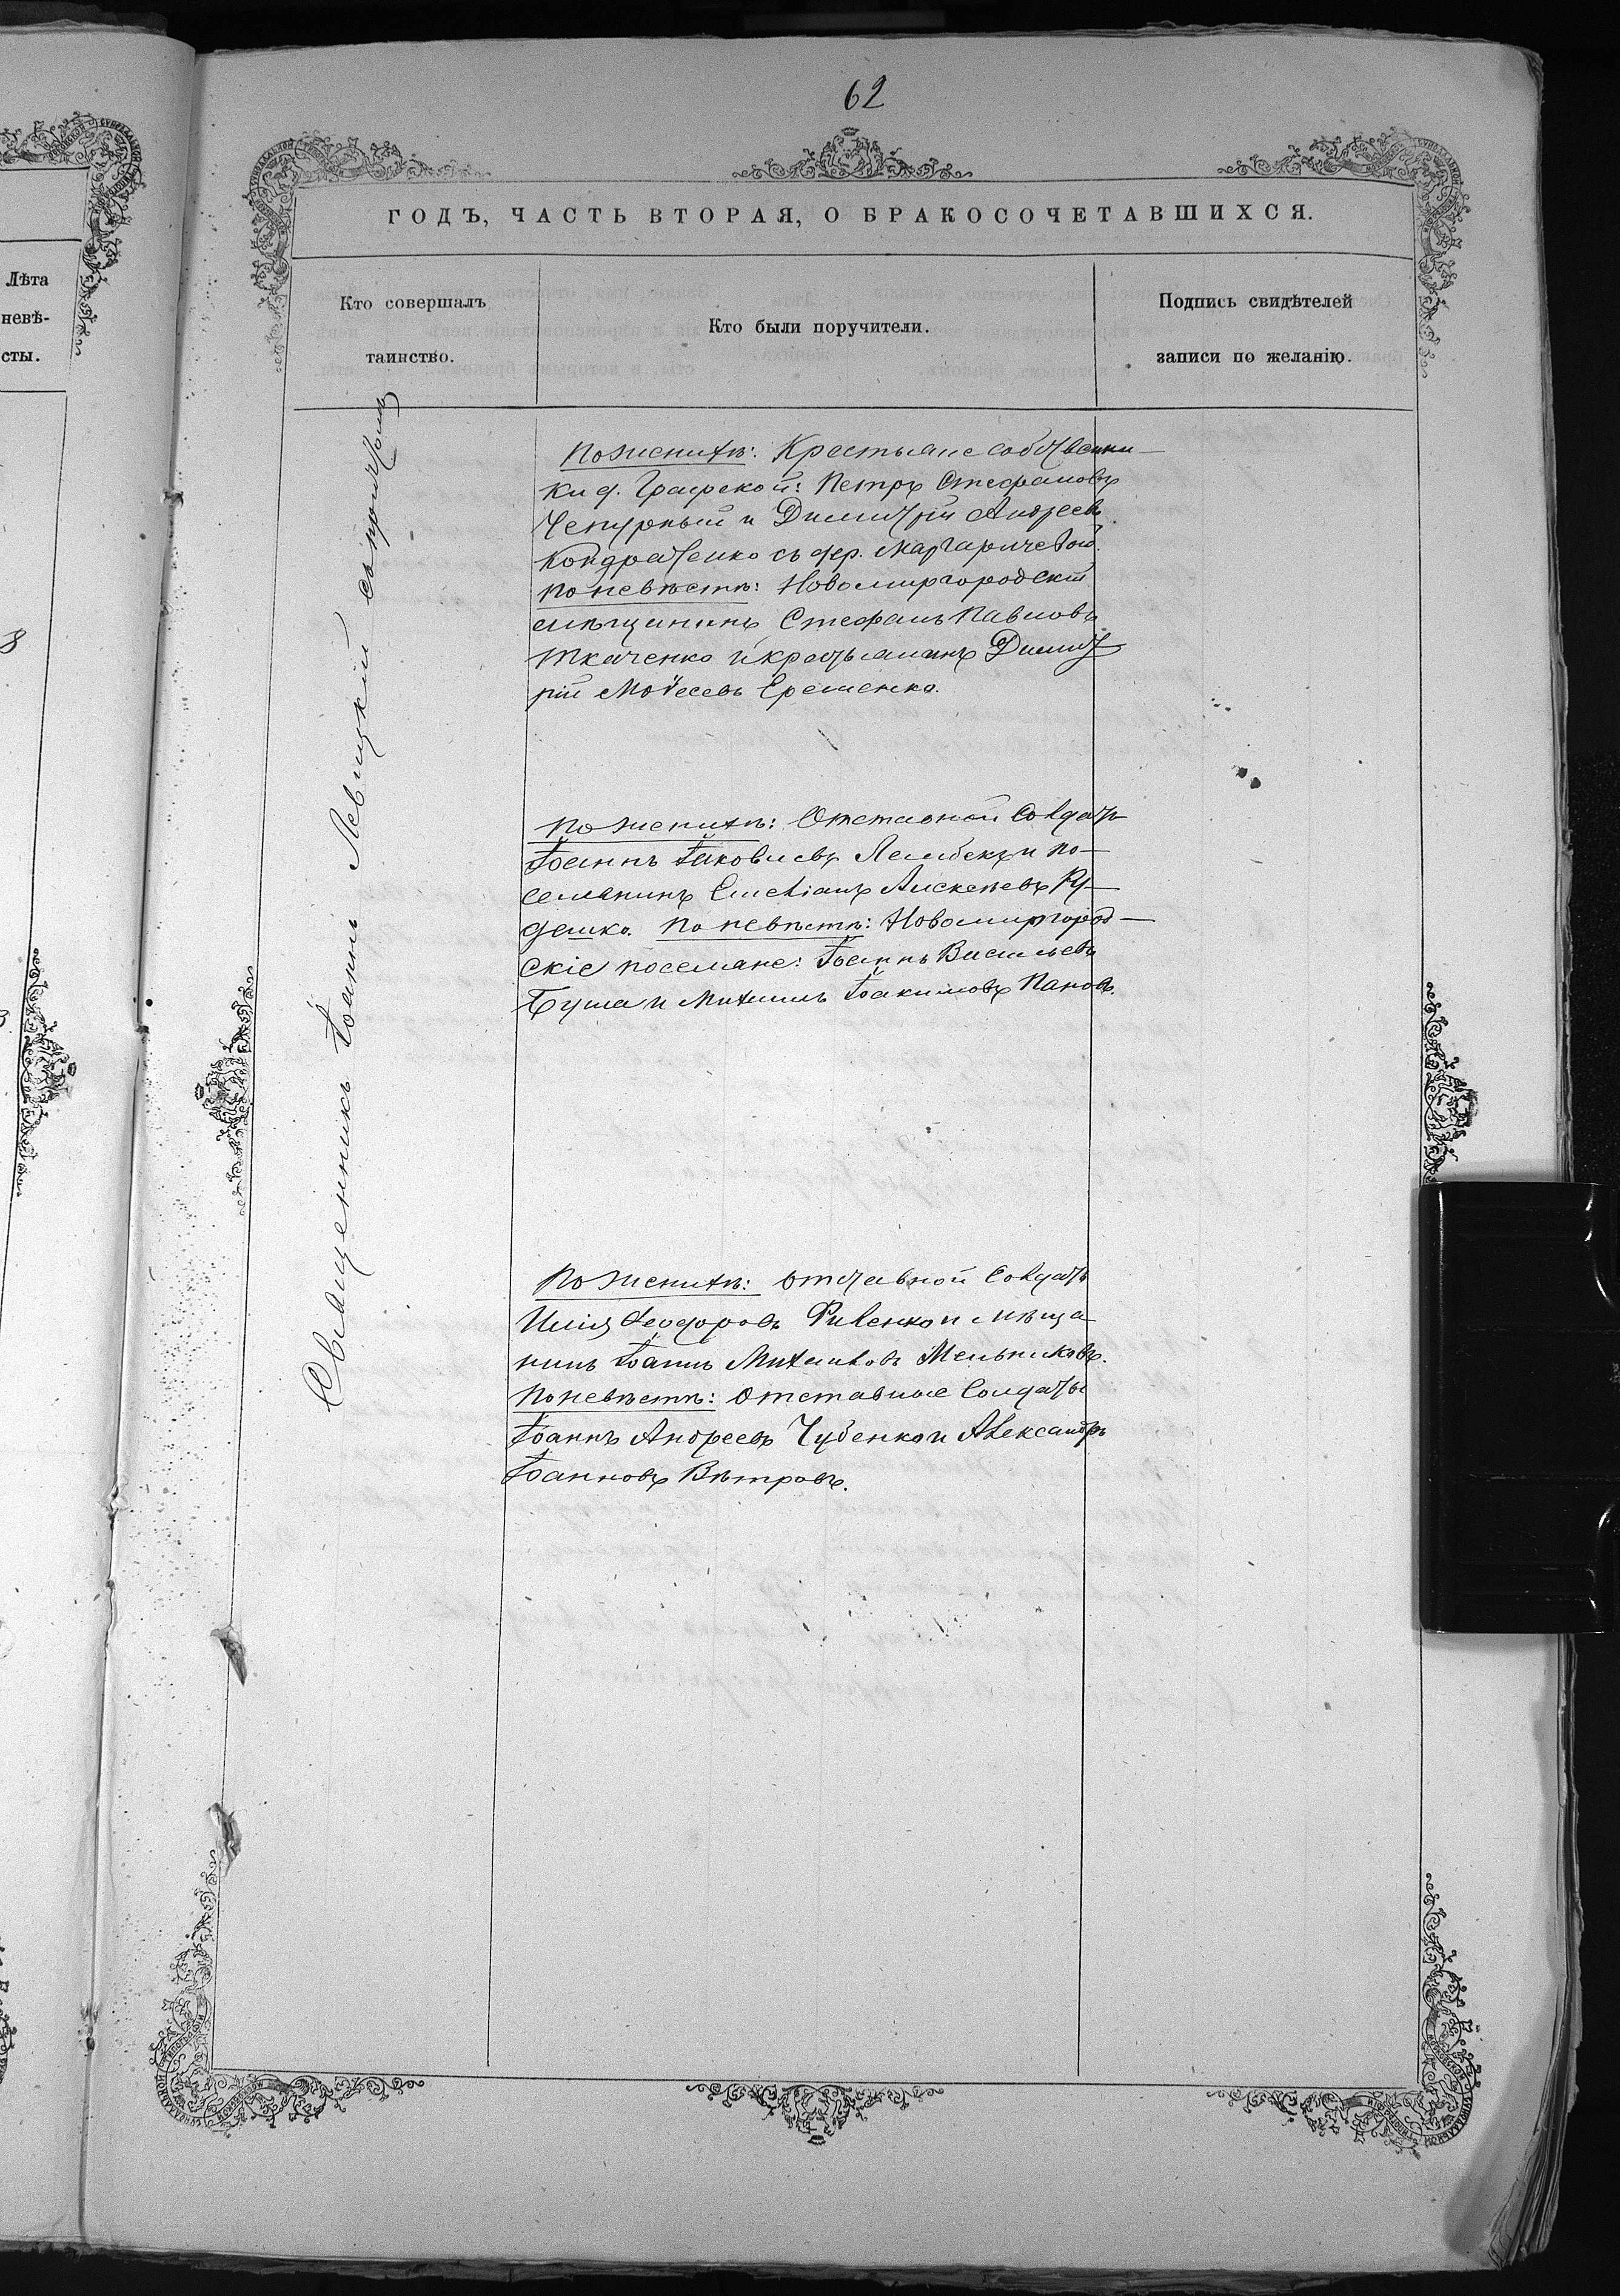 62
ГОДЪ, ЧАСТЬ ВТОРАЯ, О БРАКОСОЧЕТАВШИХСЯ.
Лѣта
невѣ-
сты.
Кто совершалъ
таинство.
Кто были поручители.
Подпись свидѣтелей
записи по желанію.
8
Священникъ Іоаннъ Левицкій съ причтомъ
По женихѣ: Крестьяне собственни-
ки д. Графской: Петръ Стефановъ
Чепурный и Димитрій Андреевъ
Кондратенко съ дер.
По невѣстѣ: Новомиргородскій
мѣщанинъ Стефанъ Павловъ
Ткаченко и крестьянинъ Димит
рій Моѵсеевъ Еременко.
По женихѣ: Отставной Солдатъ
Іоаннъ Іаковлевъ и по-
селянинъ Емеліанъ Алексѣевъ Ру-
денко. По невѣстѣ: Новомиргород-
скіе поселяне: Іоаннъ Васильевъ
Буша и Михаилъ Іоакимовъ Пановъ.
По женихѣ: отставной Солдатъ
Илія Феодоровъ и мѣща-
нинъ Іоаннъ Михаиловъ Мельниковъ.
По невѣстѣ: Отставные Солдаты
Іоаннъ Андреевъ Чубенко и Александръ
Іоанновъ Вѣтровъ.